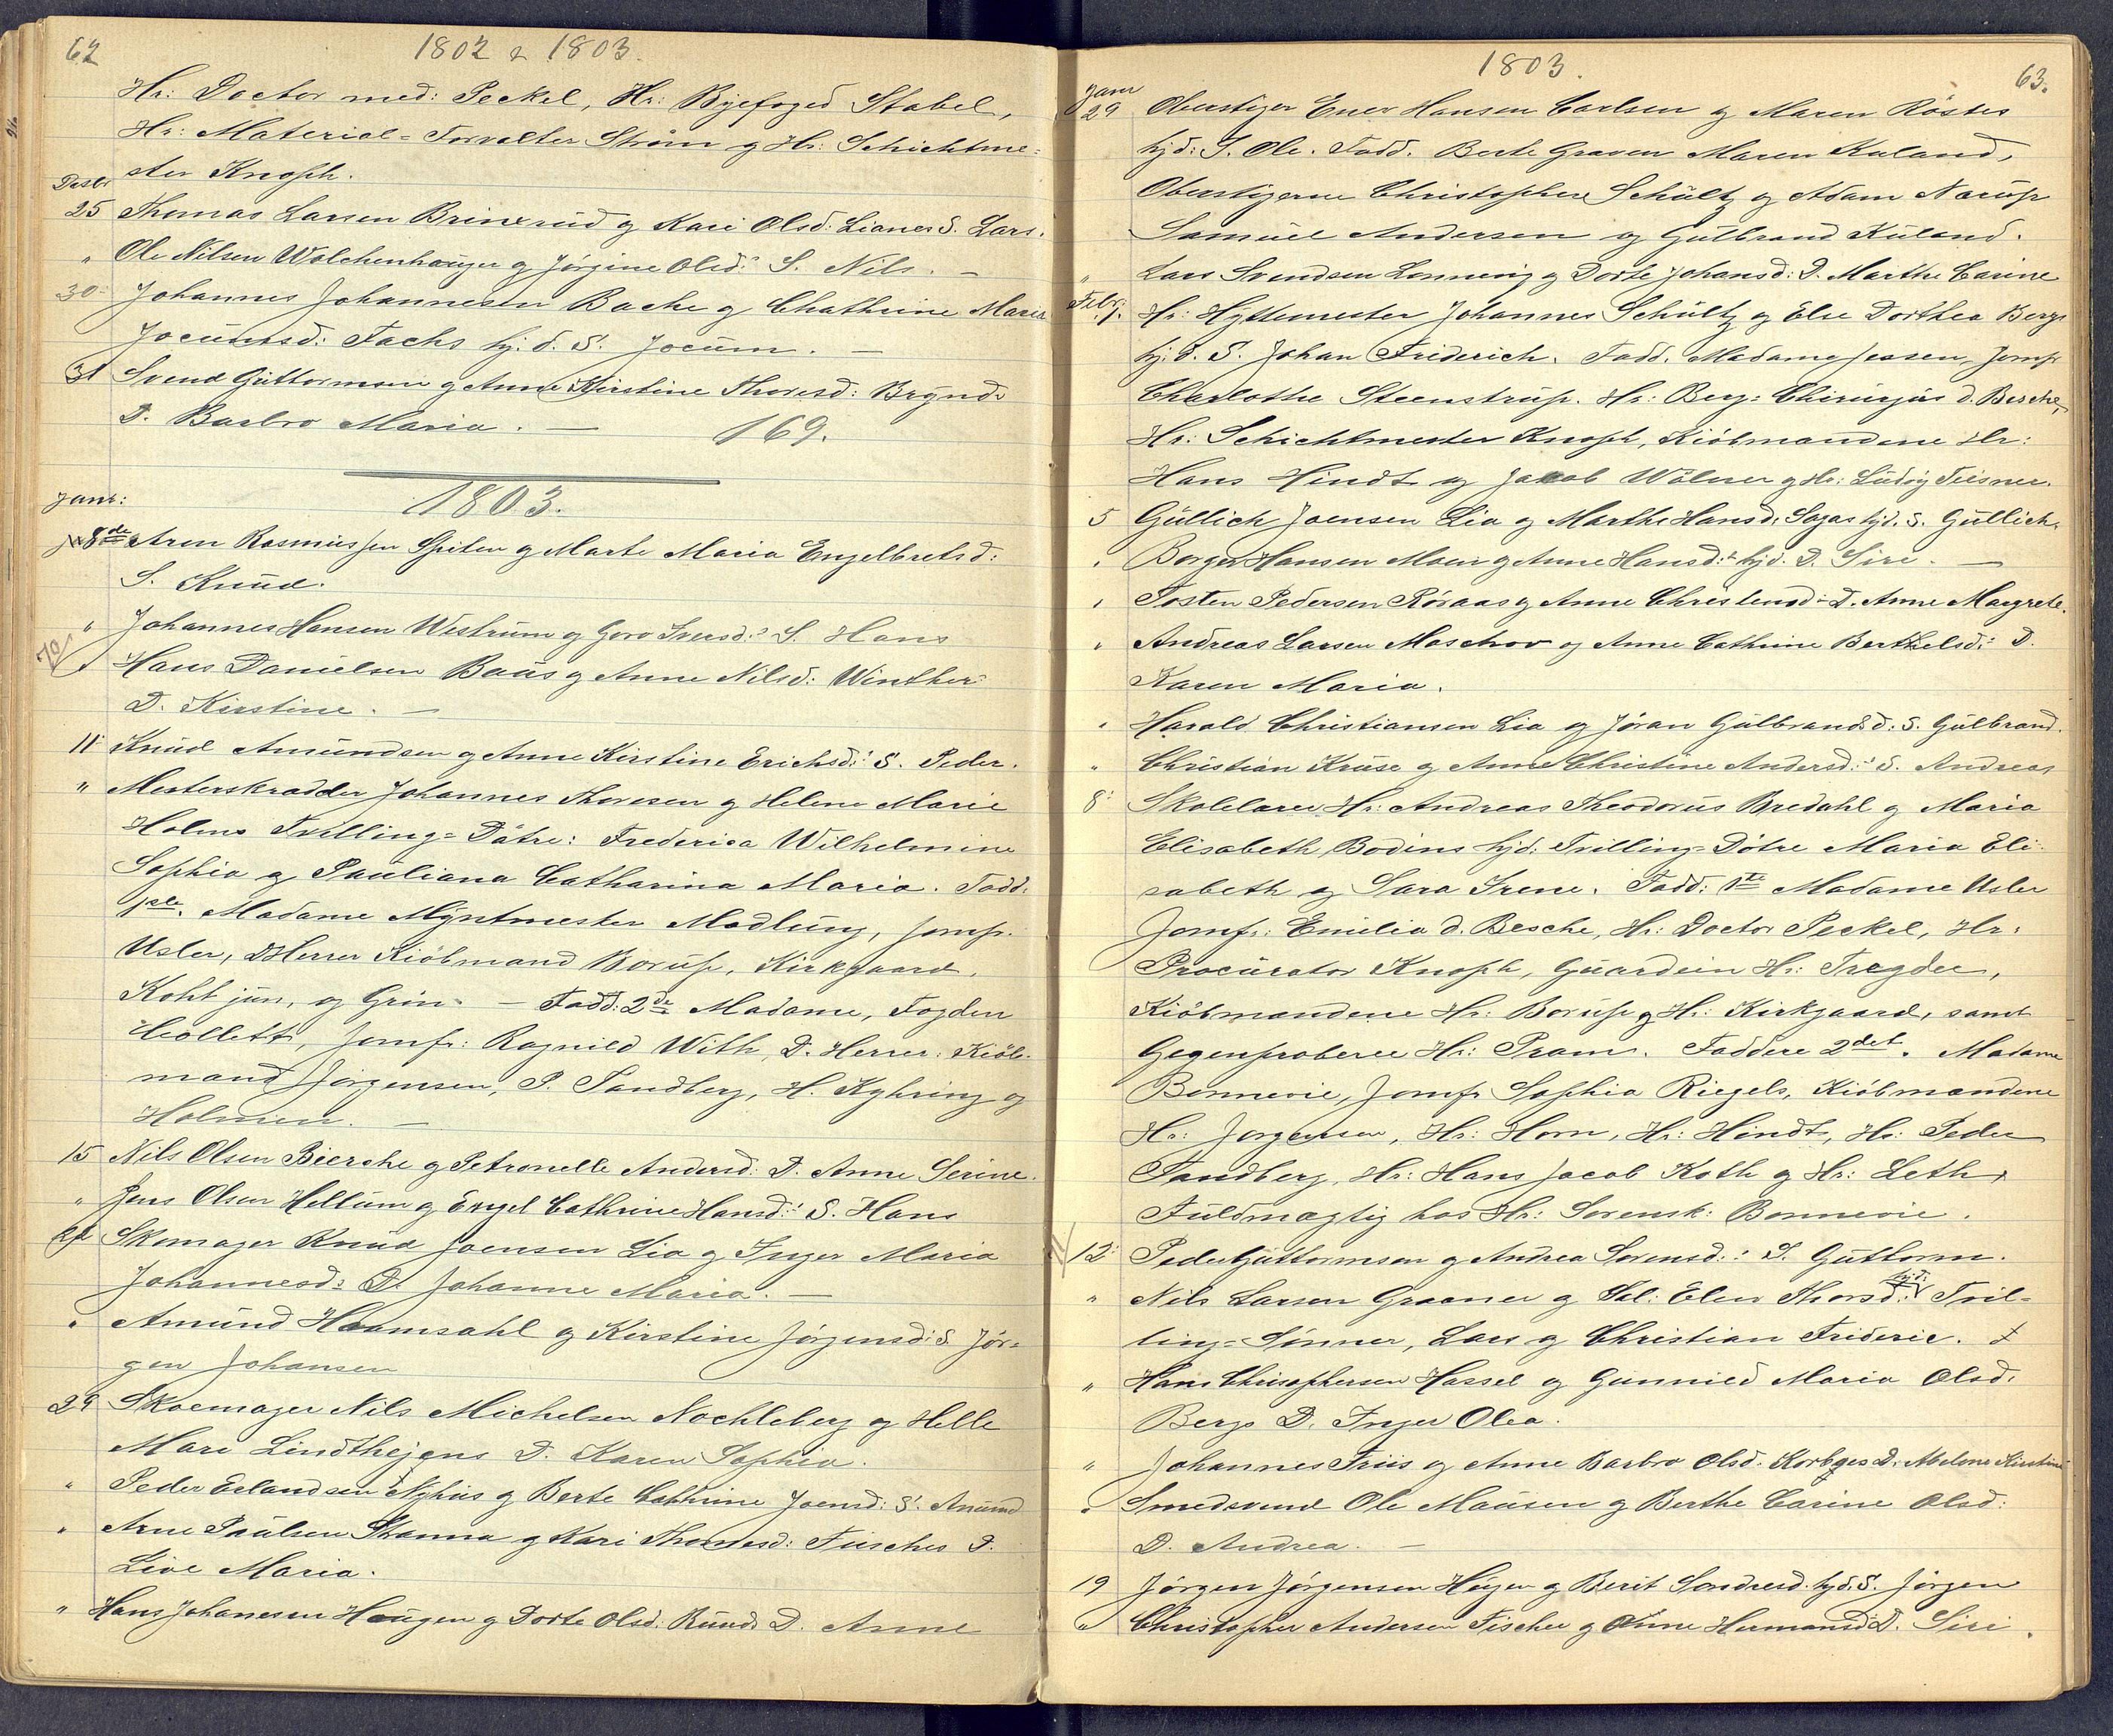 62
1802 & 1803.
Hr: Doctor med: Peckel, Hr: Byefoged Stabel,
Hr: Material=Forvalter Strøm og Hr: Schichtme=
ster Knoph.
Desbr
25 Thomas Larsen Brinerud og Kari Olsd: Lianes S. Lars.
" Ole Nilsen Walchenhauger og Jørgine Olsd: S. Nils. —
30 Johannes Johannesen Bache og Chathrine Maria
Jocumsd: Fachs hj. d. S. Jocum. —
31 Svend Guttormsen og Anne Kirstine Thoresd: Brynds
D. Barbro Maria. — 169.
Janr:
1803.
8de Aren Rasmussen Spiten og Marte Maria Engelbretsd:
S. Knud.
" Johannes Hansen Westrum og Goro Iversd: S. Hans
70
" Hans Danielsen Baus og Anne Nilsd: Winther
D. Kirstine. —
11 Knud Amundsen og Anne Kirstine Erichsd: S. Peder.
" Mesterskradder Johannes Thoresen og Helene Marie
Holms Tvilling=Døtre: Frederica Wilhelmine
Sophia og Pauliana Catharina Maria. Fadd:
1ste. Madame Myntmester Madlung, Jomfr.
Usler, DHerrer Kiöbmand Borup, Kirkgaard,
Koht jun, og Grin. — Fadd: 2de Madame, Fogden
Collett, Jomfr: Ragnild With, D. Herrer: Kiöb=
mand Jørgensen, P. Sandberg, H. Kyhring og
Holmen. —
15 Nils Olsen Bierche og Petronelle Andersd: D. Anne Serine.
" Jens Olsen Hellum og Engel Cathrine Hansd: S. Hans
Skomager Knud Joensen Lia og Inger Maria
Johannesd: D. Johanne Maria. —
" Amund Haamsahl og Kirstine Jørgensd: S. Jör=
gen Johansen
29 Skoemager Nils Michelsen Nochleberg og Helle
Mari Lindthejens D. Karen Sophia.
" Peder Erlandsen Nyhus og Berte Cathrine Joensd: S. Amund
" Arne Paulsen Skanna og Kari Thomesd: Fusches D.
Live Maria.
" Hans Johanesen Haugen og Dorte Olsd. Runds D. Anne
1803.
63.
Janr
29 Oberstiger Ener Hansen Carlsen og Maren Röstes
hjd: S. Ole. Fadd. Berte Graven Maren Kuland,
Oberstigerne Christopher Schultz og Adam Narup
Samuel Andersen og Gulbrand Kuland.
" Lars Svendsen Lonning og Dorte Johansd: D. Marthe Carine
Febr:
1. Hr: Hyttemester Johannes Schultz og Else Dorthea Bergs
hj. d. S. Johan Friderich. Fadd. Madame Jessen, Jomfr
Charlothe Steenstrup. Hr: Berg=Chirurgus d. Besche,
Hr: Schichtmester Knoph, Kiöbmandene Hr:
Hans Hindt og Jacob Wölner og Hr: Ludvig Tiisner.
5 Gullich Joensen Lia og Marthe Hansd: Sagas hjd. S. Gullich.
" Borger Hansen Moen og Anne Hansd: hjd. D. Siri. —
" Tosten Pedersen Röraas og Anne Christensd: D. Anne Margrete.
" Andreas Larsen Moschov og Anne Cathrine Berthelsd: D.
Karen Maria.
" Harald Christiansen Lia og Jöran Gulbrandsd: S. Gulbrand.
" Christian Kruse og Anne Christine Andersd: S. Andreas
8 Skolelarer Hr: Andreas Theodorus Bredahl og Maria
Elisabeth Bodins hjd: Tvilling=Dötre Maria Eli=
sabeth og Sara Irene. Fadd: 1ste Madame Usler
Jomfr: Emilia d. Besche, Hr: Doctor Peckel, Hr:
Procurator Knoph, Guardein Hr: Tregder,
Kiöbmandene Hr: Borup og Hr: Kirkgaard, samt
Gegenproberer Hr: Pram. Faddere 2det. Madame
Bonnevie, Jomfr Sophia Riegels, Kiöbmandene
Hr: Jorgensen, Hr: Horn, Hr: Hindt, Hr: Peder
Sandberg, Hr: Hans Jacob Koth og Hr: Leth,
Fuldmagtig hos Hr: Sorensk: Bonnevie.
12 Peder Guttormsen og Andrea Sorensd: S. Guttorm.
" Nils Larsen Graaner og Sal: Elen Thorsd: hjd: Tvil=
ling=Sönner, Lars og Christian Frideric.
" Hans Chrisophersen Hassel og Gunnild Maria Olsd.
Bergs D. Inger Olea.
" Johannes Friis og Anne Barbro Olsd. Korbges D. Melene Kirstine
" Smedsvend Ole Mausen og Berthe Carine Olsd:
D. Andrea. —
19 Jörgen Jörgensen Heyer og Berit Sondresd. hjd. S. Jörgen
" Christopher Andersen Fischer og Anne Hermansd: D. Siri.